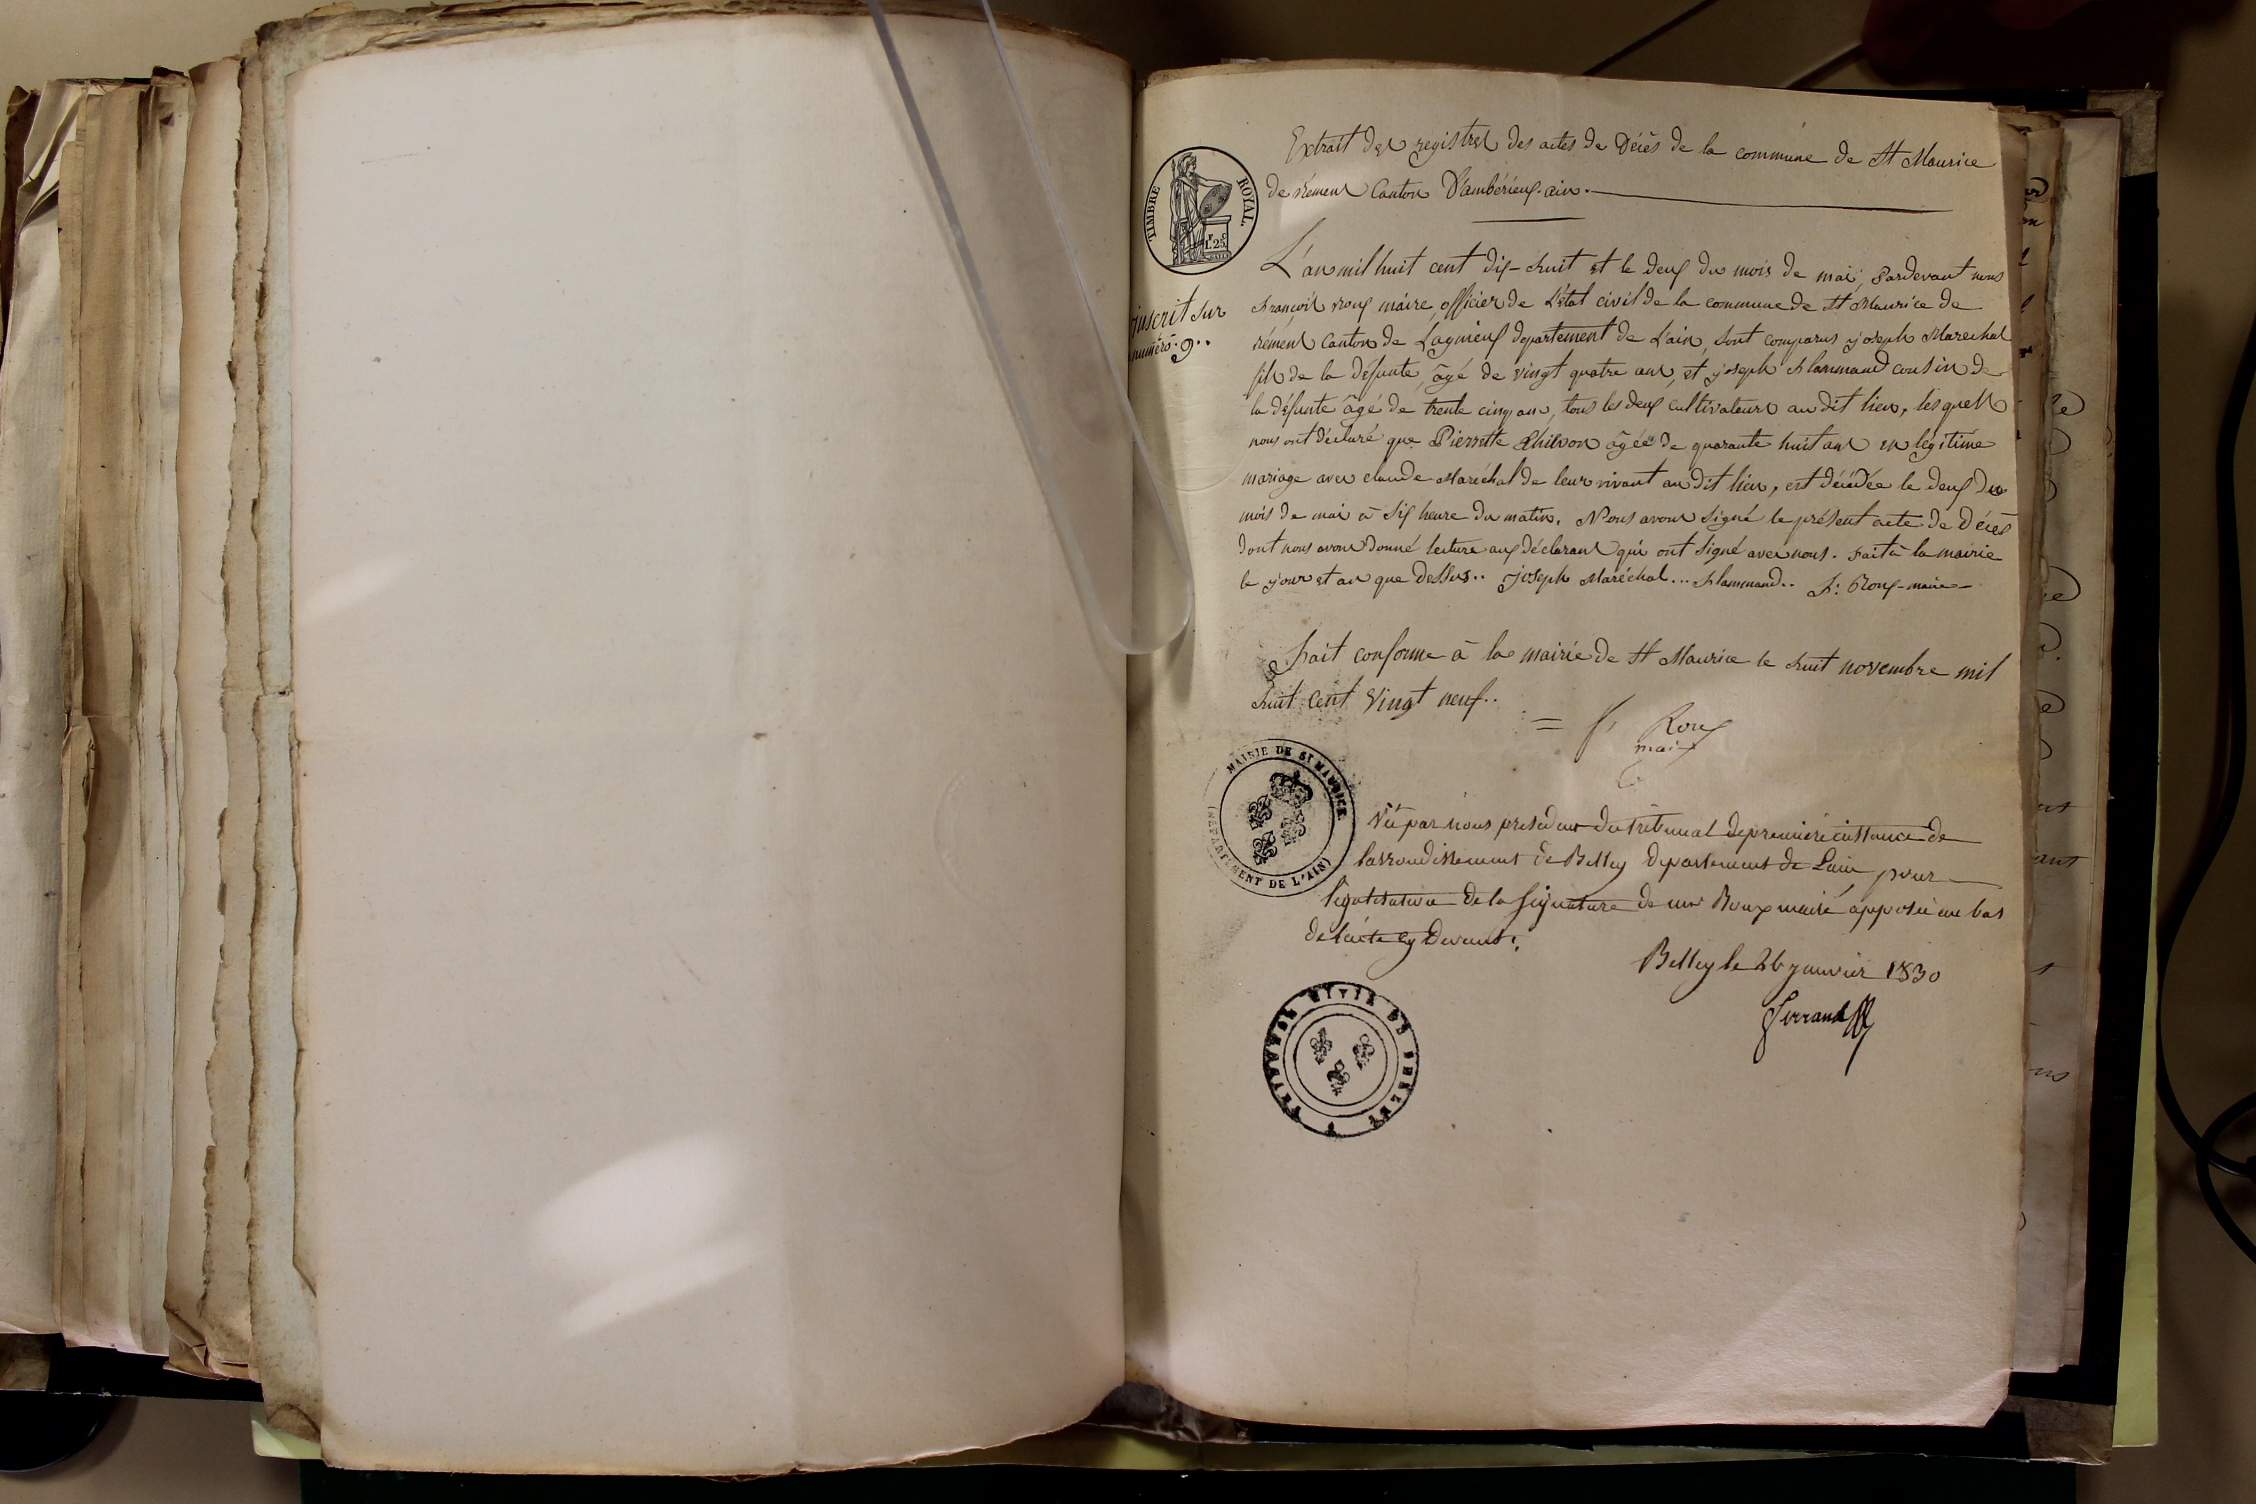 Extrait des registres des actes de décès de la commune de St Maurice
de rémens Canton d'ambérieux. ain.
TIMBRE ROYAL.
1.25
L'an mil huit cent dix-huit et le deux du mois de mai, pardevant nous
françois roux maire, officier de l'état civil de la commune de St Maurice de
rémens Canton de Lagnieux departement de l'ain, sont comparus joseph Marechal
fils de la défunte, âgé de vingt quatre ans, et joseph flammand cousin de
la défunte âgé de trente cinq ans, tous les deux cultivateurs au dit lieu, lesquels
nous ont déclaré que Pierrette Philvon âgée de quarante huit ans en légitime
mariage avec claude Maréchal de leur vivant au dit lieu, est décédée le deux du
mois de mai à six heure du matin. Nous avons signé le présent acte de décès
dont nous avons donné lecture aux déclarans qui ont signé avec nous. fait à la mairie
le jour et an que dessus.. joseph Maréchal... flammand.. f: Roux-maire-
inscrit sur
numéro. 9..
fait conforme à la mairie de St Maurice le huit novembre mil
huit cent vingt neuf..
= f. Roux
maire
MAIRIE DE ST MAURICE.
(DÉPARTEMENT DE L'AIN)
Vû par nous président du tribunal de première instance de
larrondissement de Belley departement de Lain, pour
légalisation de la signature de mr Roux maire apposée au bas
de lacte cy devant.
Belley le 26 janvier 1830
Ferrand
TRIBUNAL CIVIL DE BELLEY